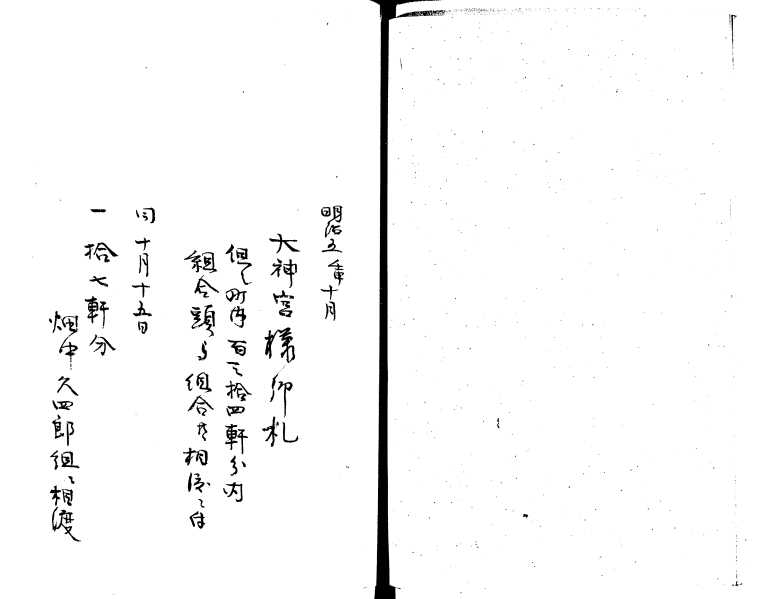 明治五年十月
大神宮様御札
但し町内百三拾四軒分内
組合頭ゟ組合方相渡ニ付
同十月十五日
一 拾七軒分
畑中久四郎組へ相渡